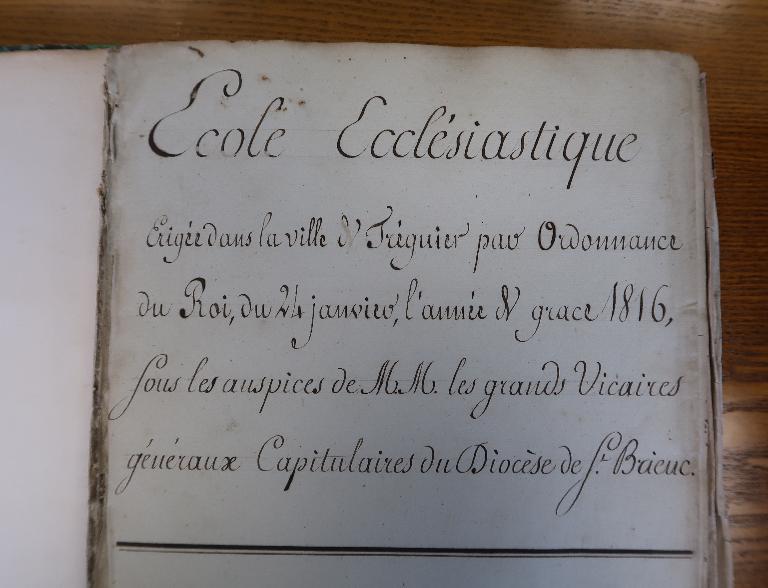 Ecole Ecclésiastique
Erigée dans la ville de Tréguier par Ordonnance
du Roi, du 24 janvier, l'année de grace 1816,
sous les auspices de M.M. les grands Vicaires
généraux Capitulaires du Diocèse de St. Brieuc.